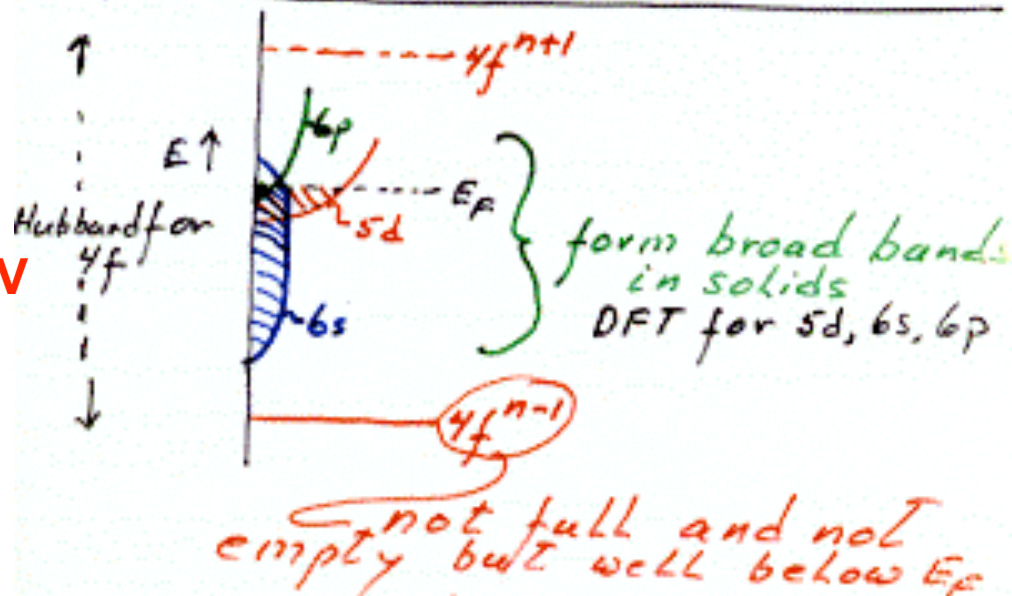 4fⁿ⁺¹
6p
E↑
E_F
5d
Hubbard for
4f
V
form broad bands
in solids
DFT for 5d, 6s, 6p
6s
4fⁿ⁻¹
not full and not
empty but well below E_F